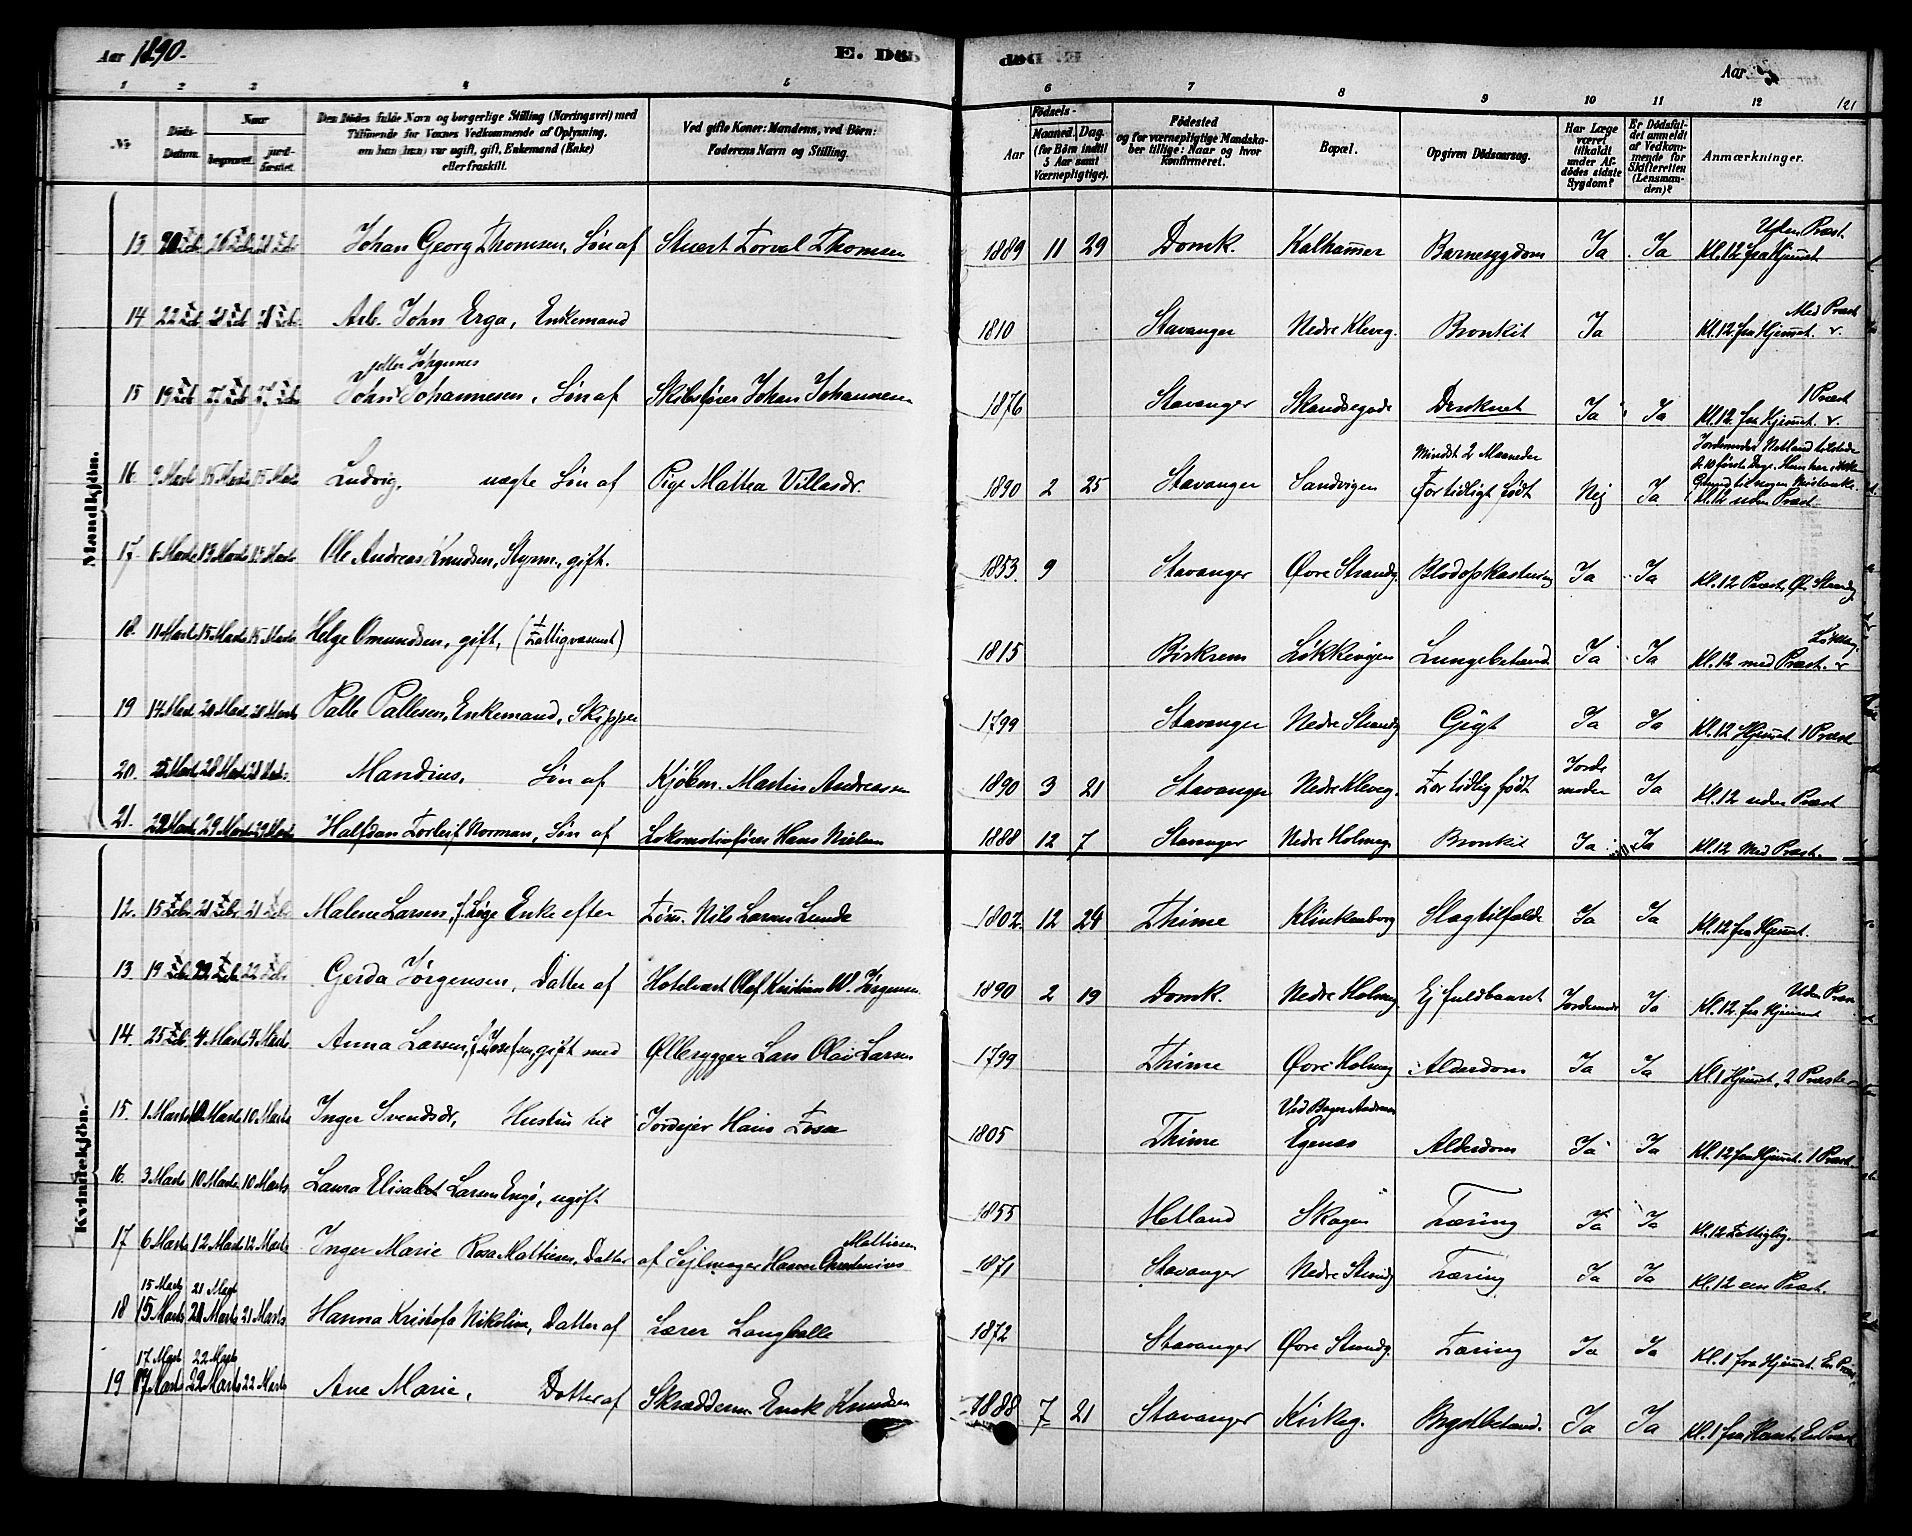 Aar 1890. E. Død
1 2 3 4 5
No
Døds-Datum.
Naar
begravet.
jord-fæstet.
Den Dødes fulde Navn og borgerlige Stilling (Næringsvei) med
Tilføiende for Voxnes Vedkommende af Oplysning,
om han (hun) var ugift, gift, Enkemand (Enke)
eller fraskilt.
Ved gifte Koner: Mandens, ved Børn:
Faderens Navn og Stilling.
Mandkjøn.
13 20 Feb 26 Feb 26 Feb Johan Georg Thomsen, Søn af Stuert Torval Thomsen
14 22 Feb Arb. John Erga, Enkemand
eller Johannes
15 19 Feb 27 Feb 27 Feb John Johannesen, Søn af Skibsfører Johan Johannesen
16 9 Marts 15 Marts 15 Marts Ludvig, uægte Søn af Pige Mattea Villasdr.
17 6 Marts 13 Marts 13 Marts Ole Andreas Knudsen, Styrm., gift.
18. 11 Marts 15 Marts 15 Marts Helge Omundsen, gift, (Fattigvæsenet)
19 14 Marts 20 Marts 20 Marts Palle Pallesen, Enkemand, Skipper
20. 25 Marts 28 Marts 28 Marts Mandius, Søn af Kjøbm. Martin Andreassen
21. 29 Marts 29 Marts Halfdan Torleif Norman, Søn af Lokomotivfører Hans Nielsen
Kvindekjøn.
12. 15 Feb 21 Feb 21 Feb Malene Larsen, Enke efter Tøm. Nils Larsen Lunde
13. 19 Feb 22 Feb 22 Feb Gerda Jørgensen, Datter af Hotelvært Olaf Kristian W. Jørgensen
14. 25 Feb 4 Marts 4 Marts Anna Larsen, gift med Ølbrygger Lars Olai Larsen
15. 1 Marts 10 Marts 10 Marts Inger Svendsdr, Hustru til Jordejer Hans Fosse
16. 3 Marts 10 Marts 10 Marts Laura Elisabet Larsen Engø, ugift
17 6 Marts 12 Marts 12 Marts Inger Marie Rosa Mathiesen, Datter af Sejlmager Hans Christenius Mathiesen
15 Marts 21 Marts
18 15 Marts 21 Marts 21 Marts Hanna Kristofa Nikoline, Datter af Lærer Langballe
17 Marts 22 Marts
19 17 Marts 22 Marts 22 Marts Ane Marie, Datter af Skrædderm. Enok Knudsen
Aar 121
6 7 8 9 10 11 12
Fødsels-
Aar
Maaned. Dag.
(for Børn indtil
5 Aar samt
Værnepligtige).
Fødested
og for værnepligtige Mandska-
ber tillige: Naar og hvor
konfirmeret.
Bopæl.
Opgiven Dødsaarsag.
Har Læge
været
tilkaldt
under Af-
dødes sidste
Sygdom?
Er Dødsfal-
det anmeldt
af Vedkom-
mende for
Skifteretten
(Lensman-
den)?
Anmærkninger.
1889 11 29 Domk. Kalhammer Barnesygdom Ja Ja Kl. 12 fra Hjemmet Uden Præst
1810 Stavanger Nedre Kleveg. Bronkit Ja Kl. 12 fra Hjemmet. Med Præst
1876 Stavanger Skandsegade Druknet Ja Ja Kl. 12. fra Hjemmet. 1 Præst
1890 2 25 Stavanger Sandvigen Mindst 2 Maaneder For tidligt født Nej Ja Jordemoder Netland tilstede de 10 første Dage. Kl. 12 uden Præst.
1853. 9 Stavanger Øvre Strandg. Blodopkastning Ja Ja Kl. 12 Præst, Ø. Strandg.
1815 Birkrem Løkkevigen Lungebetænd. Ja Ja Kl. 12 med Præst.
1799 Stavanger Nedre Strandg Gigt Ja Ja Kl. 12 Hjemmet. 1 Præst
1890 3 21 Stavanger Nedre Kleveg. For tidlig født Jordemoder Ja Kl. 12 uden Præst
1888 12 7 Stavanger Nedre Holmeg. Bronkit Ja Ja Kl. 12 Med Præst.
1802. 12 24 Thime Klinkenborg Slagtilfælde Ja Ja Kl. 12 fra Hjemmet.
1890 2 19 Domk. Nedre Holmeg Ej fuldbaaret Jordemoder Ja Kl. 12 fra Hjemmet Uden Præst
1799 Thime Øvre Holmeg Alderdom Ja Ja Kl. 1 Hjemmet, 2 Præster
1805 Thime Ved Bager Andersen Egenæs Alderdom Ja Ja Kl. 12 fra Hjemmet. 1 Præst
1855 Hetland Skagen Tæring Ja Ja Kl. 12 Fattiglig.
1871 Stavanger Nedre Strandg Tæring Ja Ja Kl. 12 een Præst.
1872 Stavanger Øvre Strandg. Tæring Ja Ja Kl. 1 fra Hjemmet. En Præst
1888 7 21 Stavanger Kirkeg. Brystbetænd. Ja Ja Kl. 1 fra Huset, En Præst